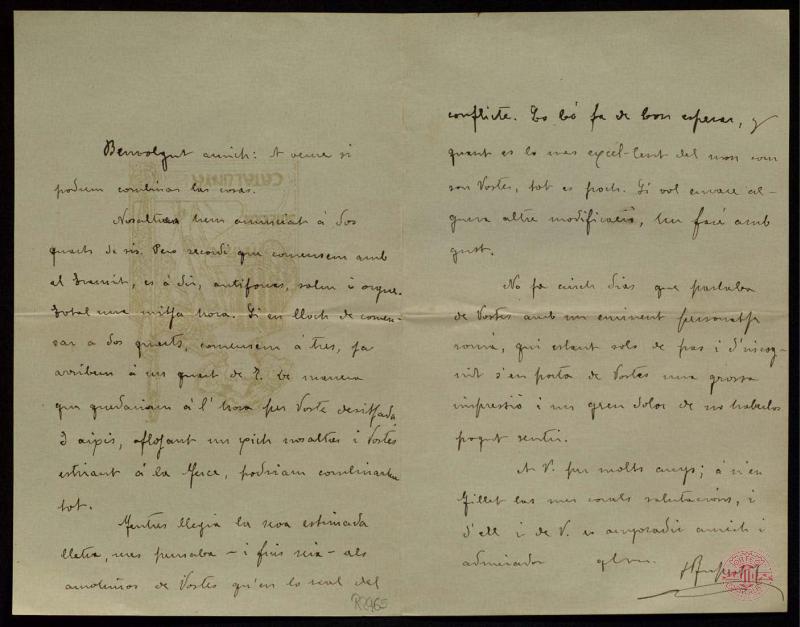 Benvolgut amich: A veure si
podem combinar las cosas.
Nosaltres hem anunciat á dos
quarts de sis. Pero recordi que comensem amb
el , es á dir, antifonas, salm i orgue.
Total una mitja hora. Si en lloch de comen-
sar a dos quarts, comensem á tres, ja
arribem á un quart de 7. De manera
que quedariam á l' hora per Vosté desitjada
I aixis, aflojant un xich nosaltres i Vostés
estirant á la Merce, podriam combinarho
tot.
Mentres llegia la seva estimada
lletra, mes pensaba – i fins reia – als
de Vostés qu'en lo real del
conflicte. Lo bó fa de bon esperar, y
quant es lo mes excel-lent del mon com
son Vostés, tot es poch. Si vol enviar al-
guna altre modificació, hu faré amb
gust.
No fa cinch dias que parlaba
de Vostés amb un eminent personatje
romá, qui estant sols de pas i d'incog-
nit s'en porta de Vostés una grossa
impressió i un gran dolor de no haberlos
pogut sentir.
A V. per molts anys; á n'en
Millet las mes corals salutacions, i
d'ell i de V. es amich i
admirador
R2965